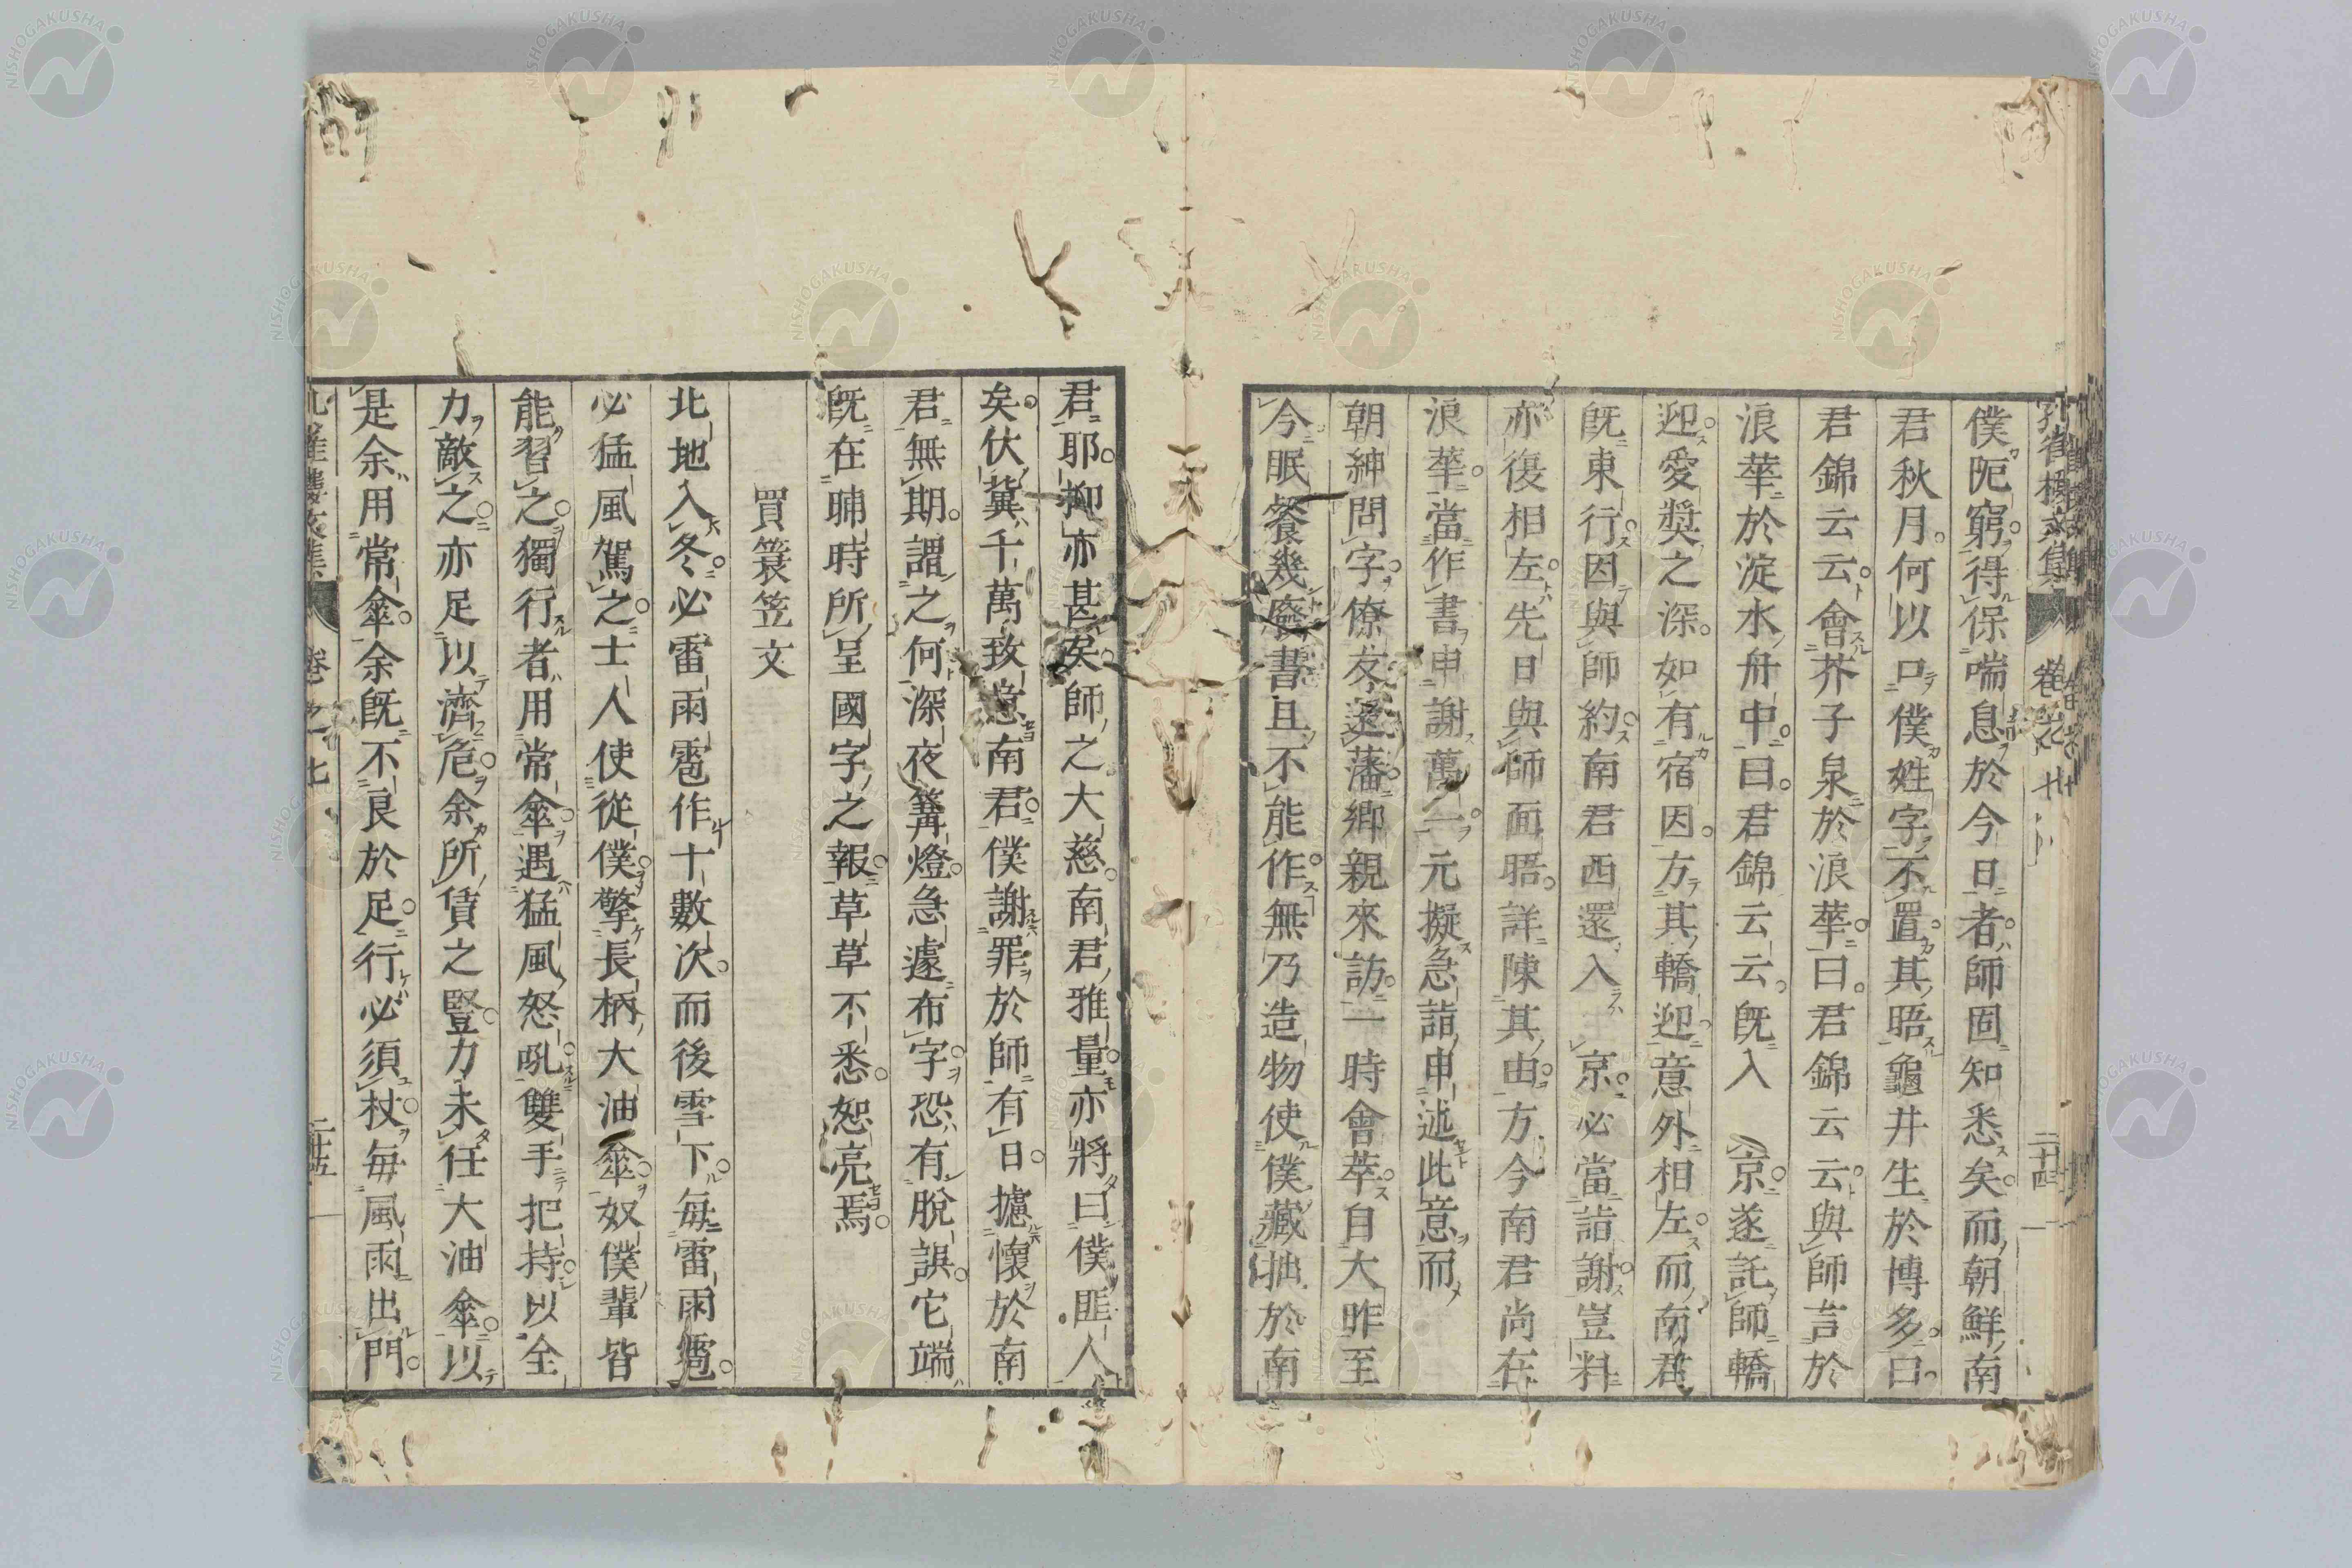 僕阨窮得保喘息於今日者師固知悉矣而朝鮮南
君秋月何以口僕姓字不置其晤龜井生於博多曰
君錦云云會芥子泉於浪華曰君錦云云與師言於
浪華於淀水舟中曰君錦云云既入 京遂託師轎
迎愛獎之深如有宿因方其轎迎意外相左而南君
既東行因與師約南君西還入 京必當詣謝豈料
亦復相左先日與師面晤詳陳其由方今南君尚在
浪華當作書申謝萬一元擬急詣申述此意而
朝紳問字僚友送藩卿親來訪一時會萃自大昨至
今眠餐幾廢書且不能作無乃造物使僕藏拙於南
君耶抑亦甚矣師之大慈南君雅量亦將曰僕匪人
矣伏冀千萬致意南君僕謝罪於師有日攄懷於南
君無期謂之何深夜篝燈急遽布字恐有脫誤它端
既在晡時所呈國字之報草草不悉恕亮焉
買簑笠文
北地入冬必雷雨雹作十數次而後雪下每雷雨雹
必猛風駕之士人使從僕擎長柄大油傘奴僕輩皆
能習之獨行者用常傘遇猛風怒吼雙手把持以全
力敵之亦足以濟危余所賃之豎力未任大油傘以
是余用常傘余既不良於足行必須杖每風雨出門
卷之七
二十四
二十五
NISHOGAKUSHA